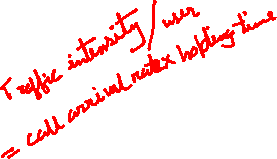 Traffic intensity/user
= call arrival rate x holding time